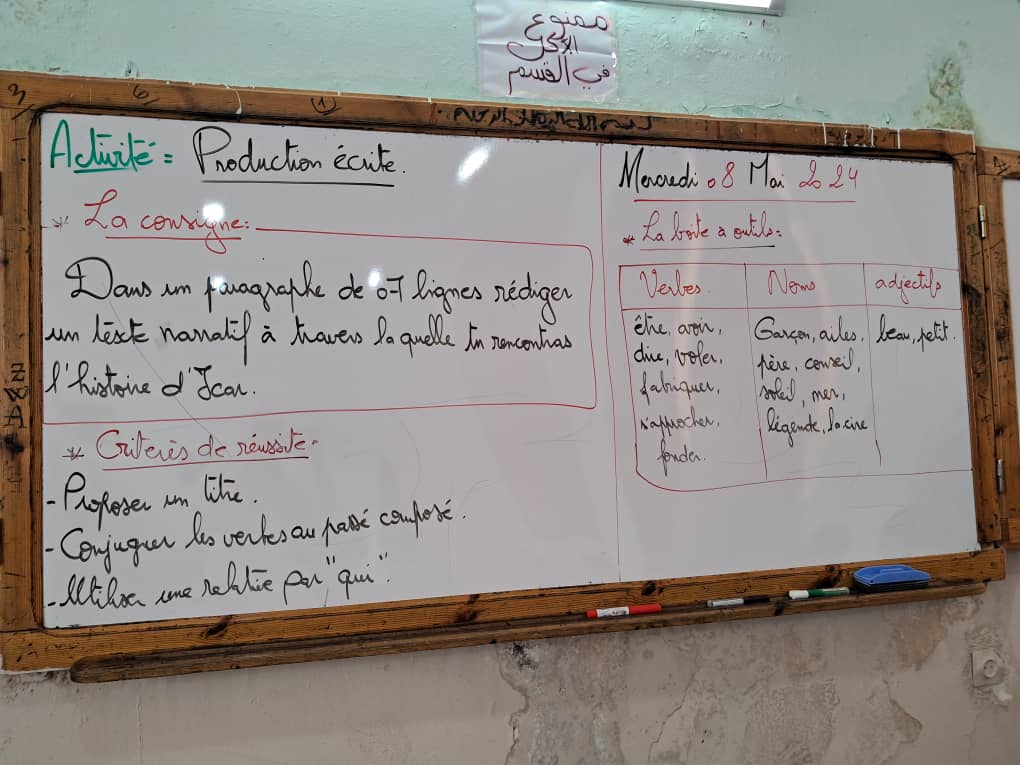 ممنوع
الأكل
في القسم
3
6
1
Activité : Production écrite.
* La consigne :
Dans un paragraphe de 07 lignes rédiger
un texte narratif à travers la quelle tu rencontras
l'histoire d'Icar.
* Criterès de réussite
- Proposer un titre.
- Conjuguer les verbes au passé composé.
- Utiliser une relative par "qui".
Mercredi 08 Mai 2024
* La boite a outils :
Verbes Noms adjectifs
être, avoir, Garçon, ailes, beau, petit.
dire, voler, père, conseil,
fabriquer, soleil, mer,
s'approcher, légende, la cire
fonder.